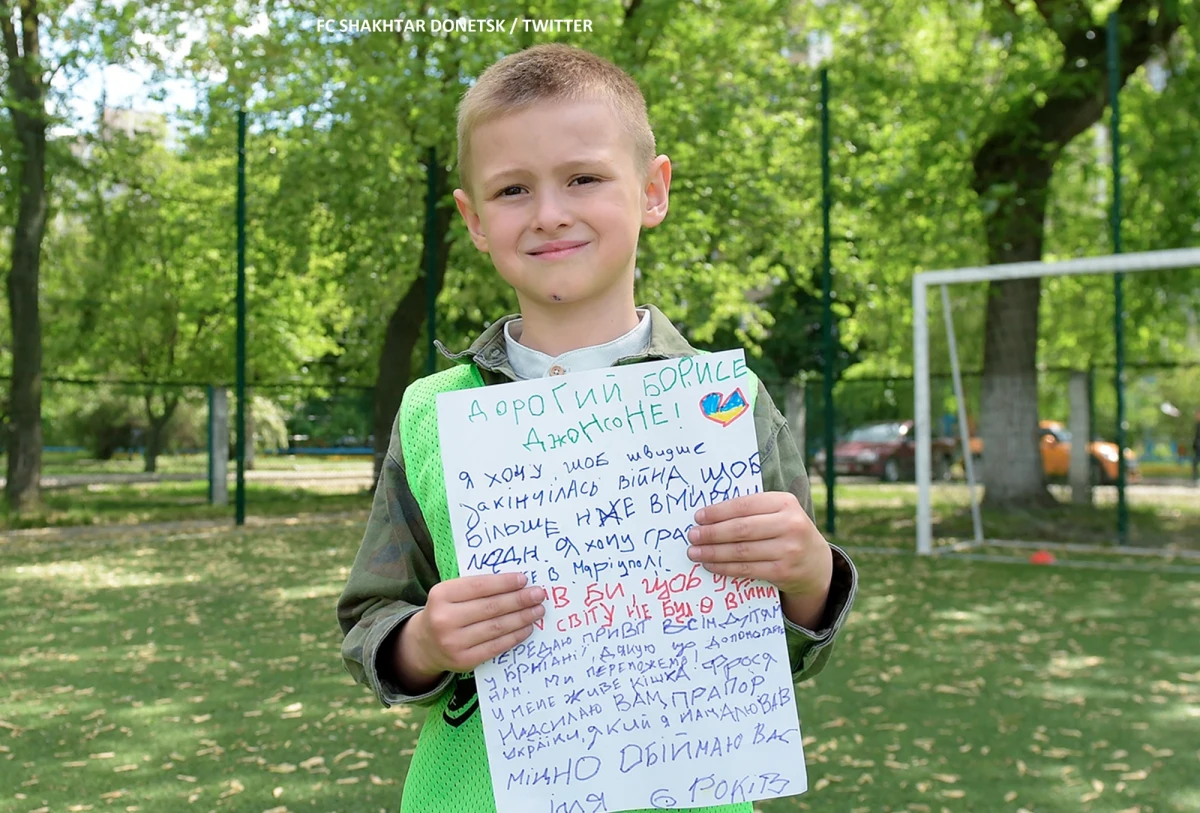 FC SHAKHTAR DONETSK / TWITTER
ДОРОГИЙ БОРИСЕ
ДЖОНСОНЕ!
Я ХОЧУ, ЩОБ ШВИДШЕ
ЗАКІНЧИЛАСЬ ВІЙНА, ЩОБ
БІЛЬШЕ НЕ ВМИРАЛИ
ЛЮДИ. Я ХОЧУ ГРА
В МАРІУПОЛІ.
ІВ БИ, ЩОБ У
СВІТУ НЕ БУЛО ВІЙНИ
ПЕРЕДАЮ ПРИВІТ ВСІМ ДІТЯМ
У БРИТАНІЇ, ДЯКУЮ ЩО ДОПОМОГАЄТЕ
НАМ. МИ ПЕРЕМОЖЕМО!
У МЕНЕ ЖИВЕ КІШКА ФРОСЯ
НАДСИЛАЮ ВАМ ПРАПОР
УКРАЇНИ, ЯКИЙ Я НАМАЛЮВАВ
МІЦНО ОБІЙМАЮ ВАС
ІЛЛЯ 6 РОКІВ